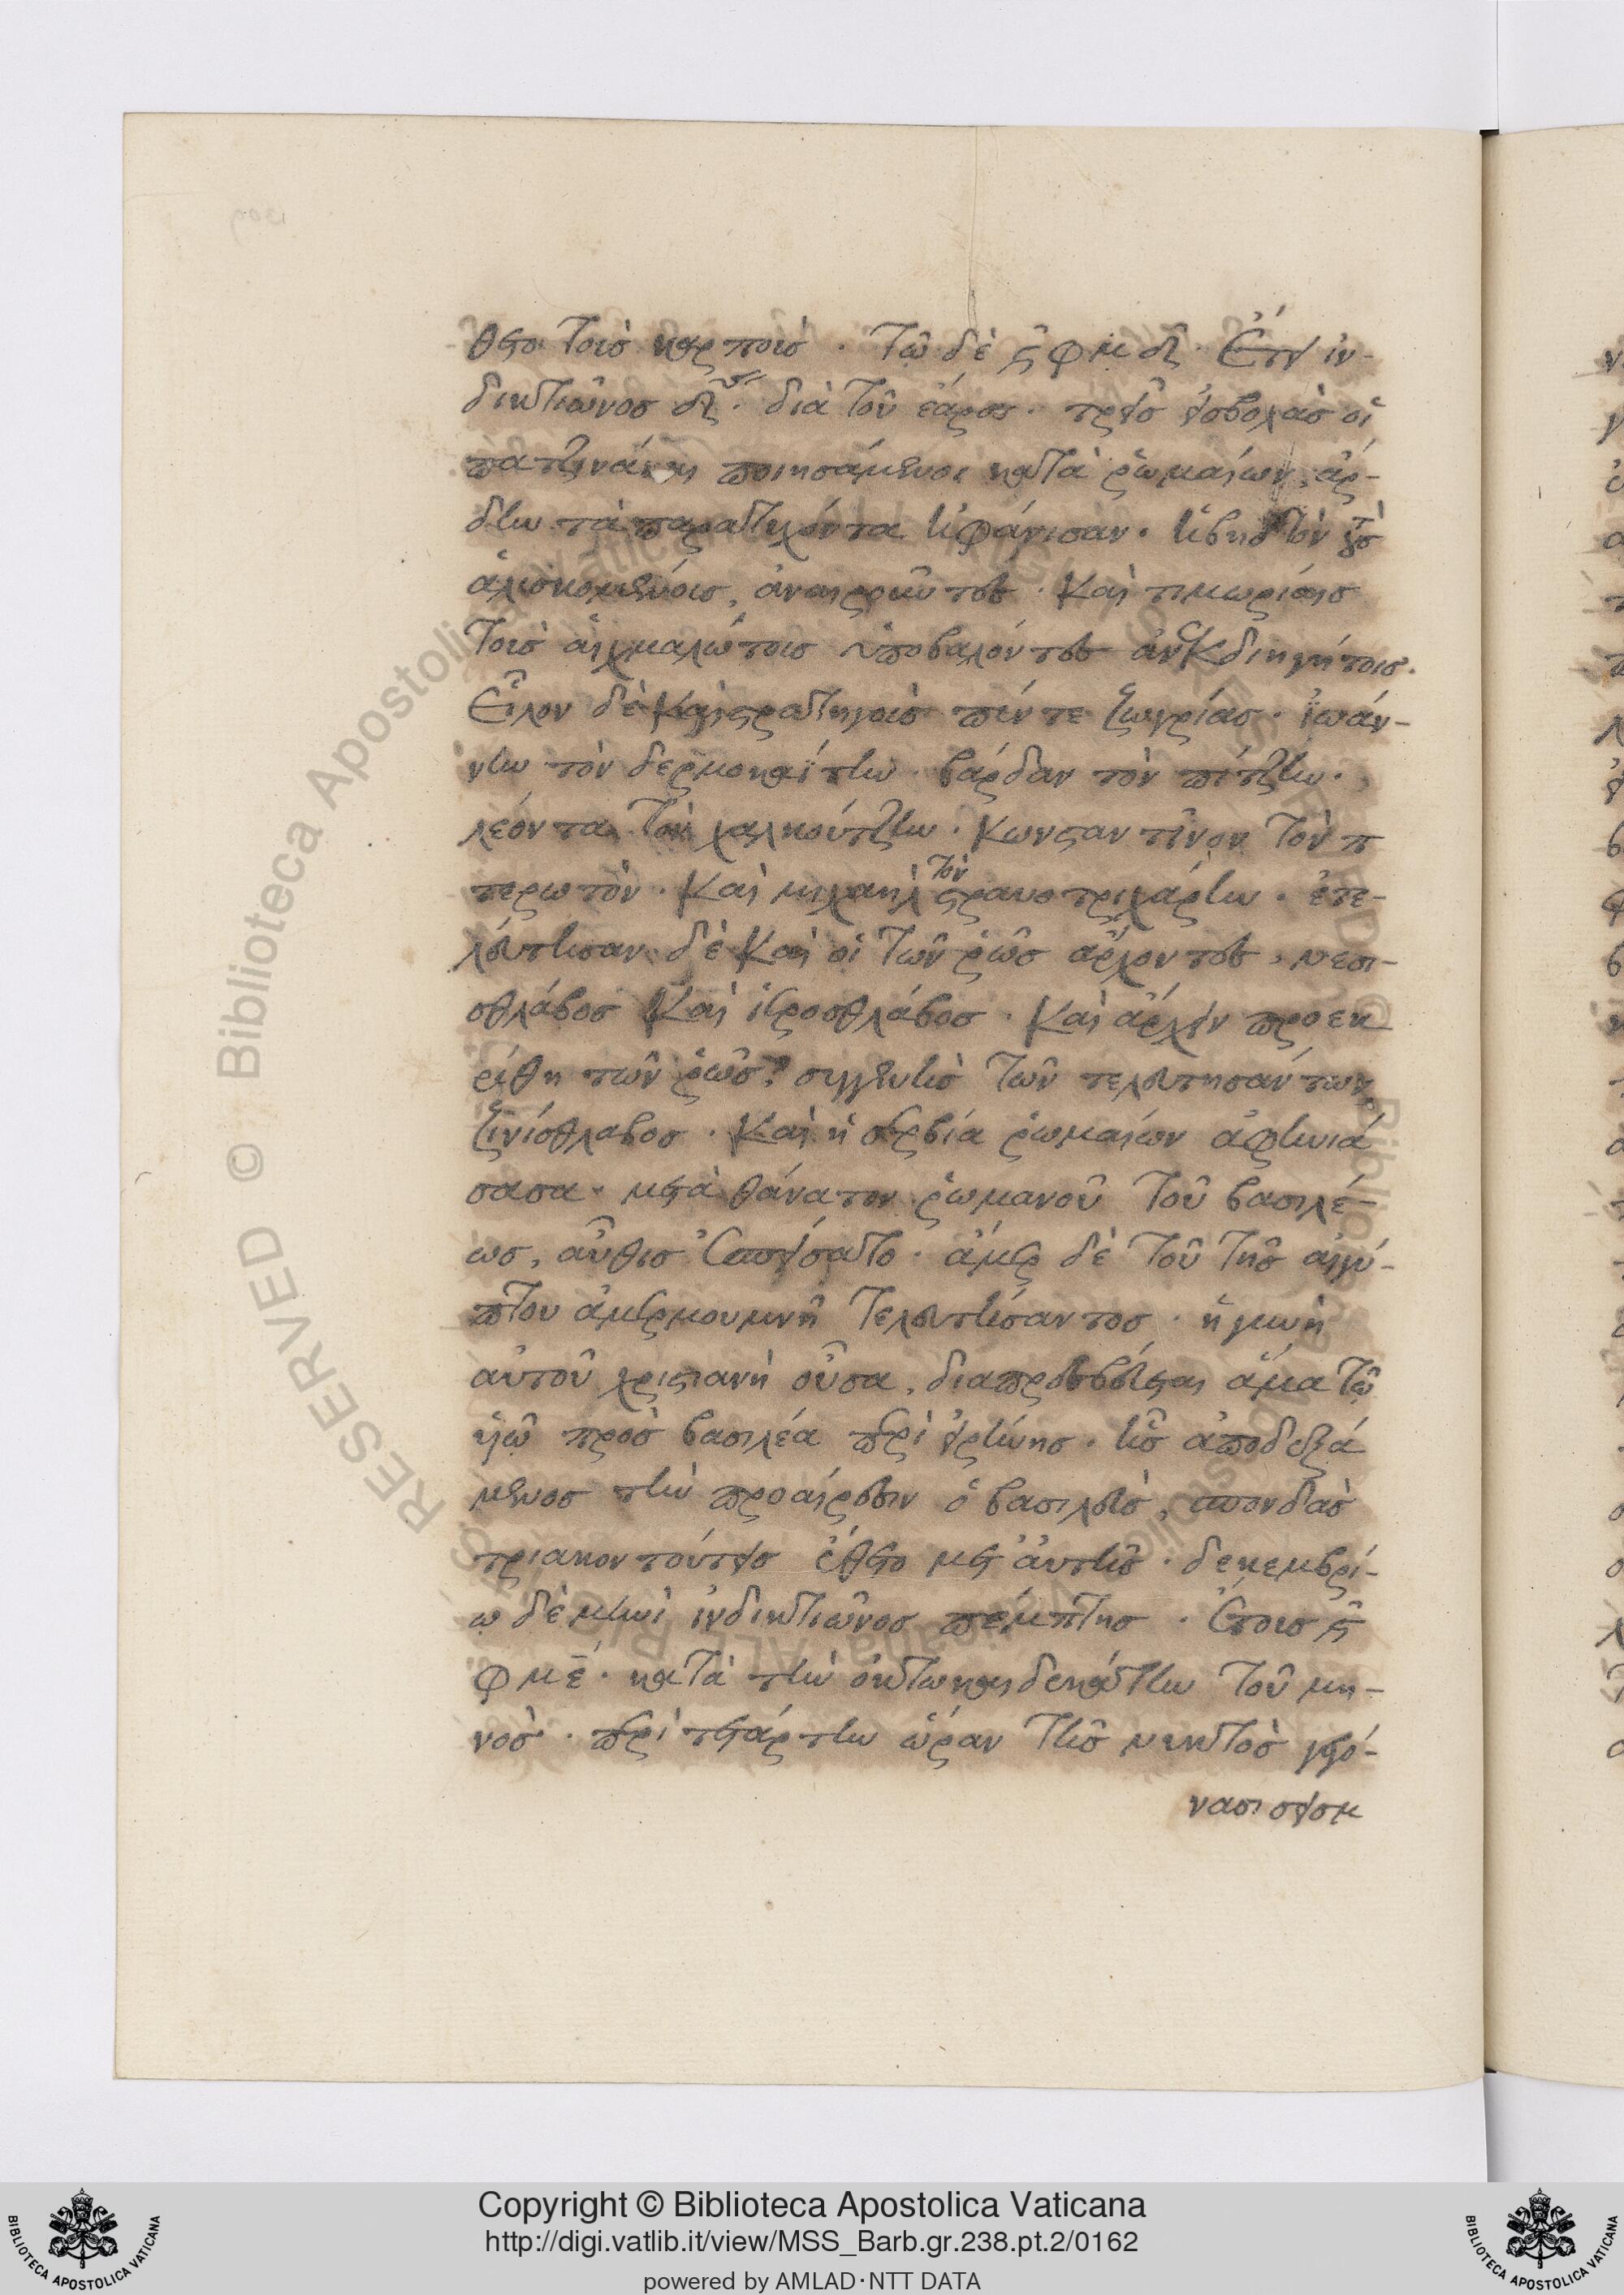 θετο τοῖσ καρποῖσ. Τῷ δὲ ͵ςφμδ. Ἔτει ἰν-
δικτιῶνοσ δ. διὰ τοῦ ἔαροσ. τρεῖσ εἰσβολὰσ οἱ
πατζινάκαι ποιησάμενοι κατὰ ῥωμαίων, ἄρ-
δην τὰ παρατυχόντα ἠφάνισαν. ἡβηδὸν τοὺσ
ἁλισκομένουσ, ἀναιροῦντεσ. Καὶ τιμωρίαισ
τοὺσ αἰχμαλώτουσ ὑποβαλόντεσ ἀνεκδιηγήτοισ.
Εἷλον δὲ καὶ στρατηγοὺσ πέντε ζωγρίασ. ἰωάν-
νην τὸν δερμοκαΐτην. βάρδαν τὸν πίτζην.
λέοντα τὸν χαλκούτζην. Κωνσταντῖνον τὸν π
τερωτὸν. Καὶ μιχαὴλ τὸν στραυοτριχάρην. ἐτε-
λεύτησαν δὲ καὶ οἱ τῶν ῥῶσ ἄρχοντεσ, νεσι-
σθλάβοσ καὶ ἱεροσθλάβοσ. Καὶ ἄρχειν προεκ
ρίθη τῶν ῥῶσ, συγγενὴσ τῶν τελευτησάντων
ζινίσθλαβοσ. Καὶ ἡ σερβία ῥωμαίων ἀφηνιά
σασα. μετὰ θάνατον ῥωμανοῦ τοῦ βασιλέ-
ωσ, αὖθισ ἐσπείσατο. ἄμερ δὲ τοῦ τῆσ αἰγύ-
πτου ἀμερμουμνῆ τελευτήσαντοσ. ἡ γυνὴ
αὐτοῦ χριστιανὴ οὖσα, διαπρεσβεύεται ἅμα τῷ
υἱῷ πρὸσ βασιλέα περὶ εἰρήνησ. ἧσ ἀποδεξά
μενοσ τὴν προαίρεσιν ὁ βασιλεὺσ, σπονδὰσ
τριακοντούτεισ ἔθετο μετ' αὐτῆσ. δεκεμβρί-
ῳ δὲ μηνὶ ἰνδικτιῶνοσ πέμπτησ. Ἔτουσ ͵ς
φμε. κατὰ τὴν ὀκτωκαιδεκάτην τοῦ μη-
νὸσ. περὶ τετάρτην ὥραν τῆσ νυκτὸσ γεγό-
νασι σεισμ
RESERVED © Biblioteca Apostolica Vaticana
Copyright © Biblioteca Apostolica Vaticana
http://digi.vatlib.it/view/MSS_Barb.gr.238.pt.2/0162
powered by AMLAD·NTT DATA
BIBLIOTECA APOSTOLICA VATICANA
BIBLIOTECA APOSTOLICA VATICANA